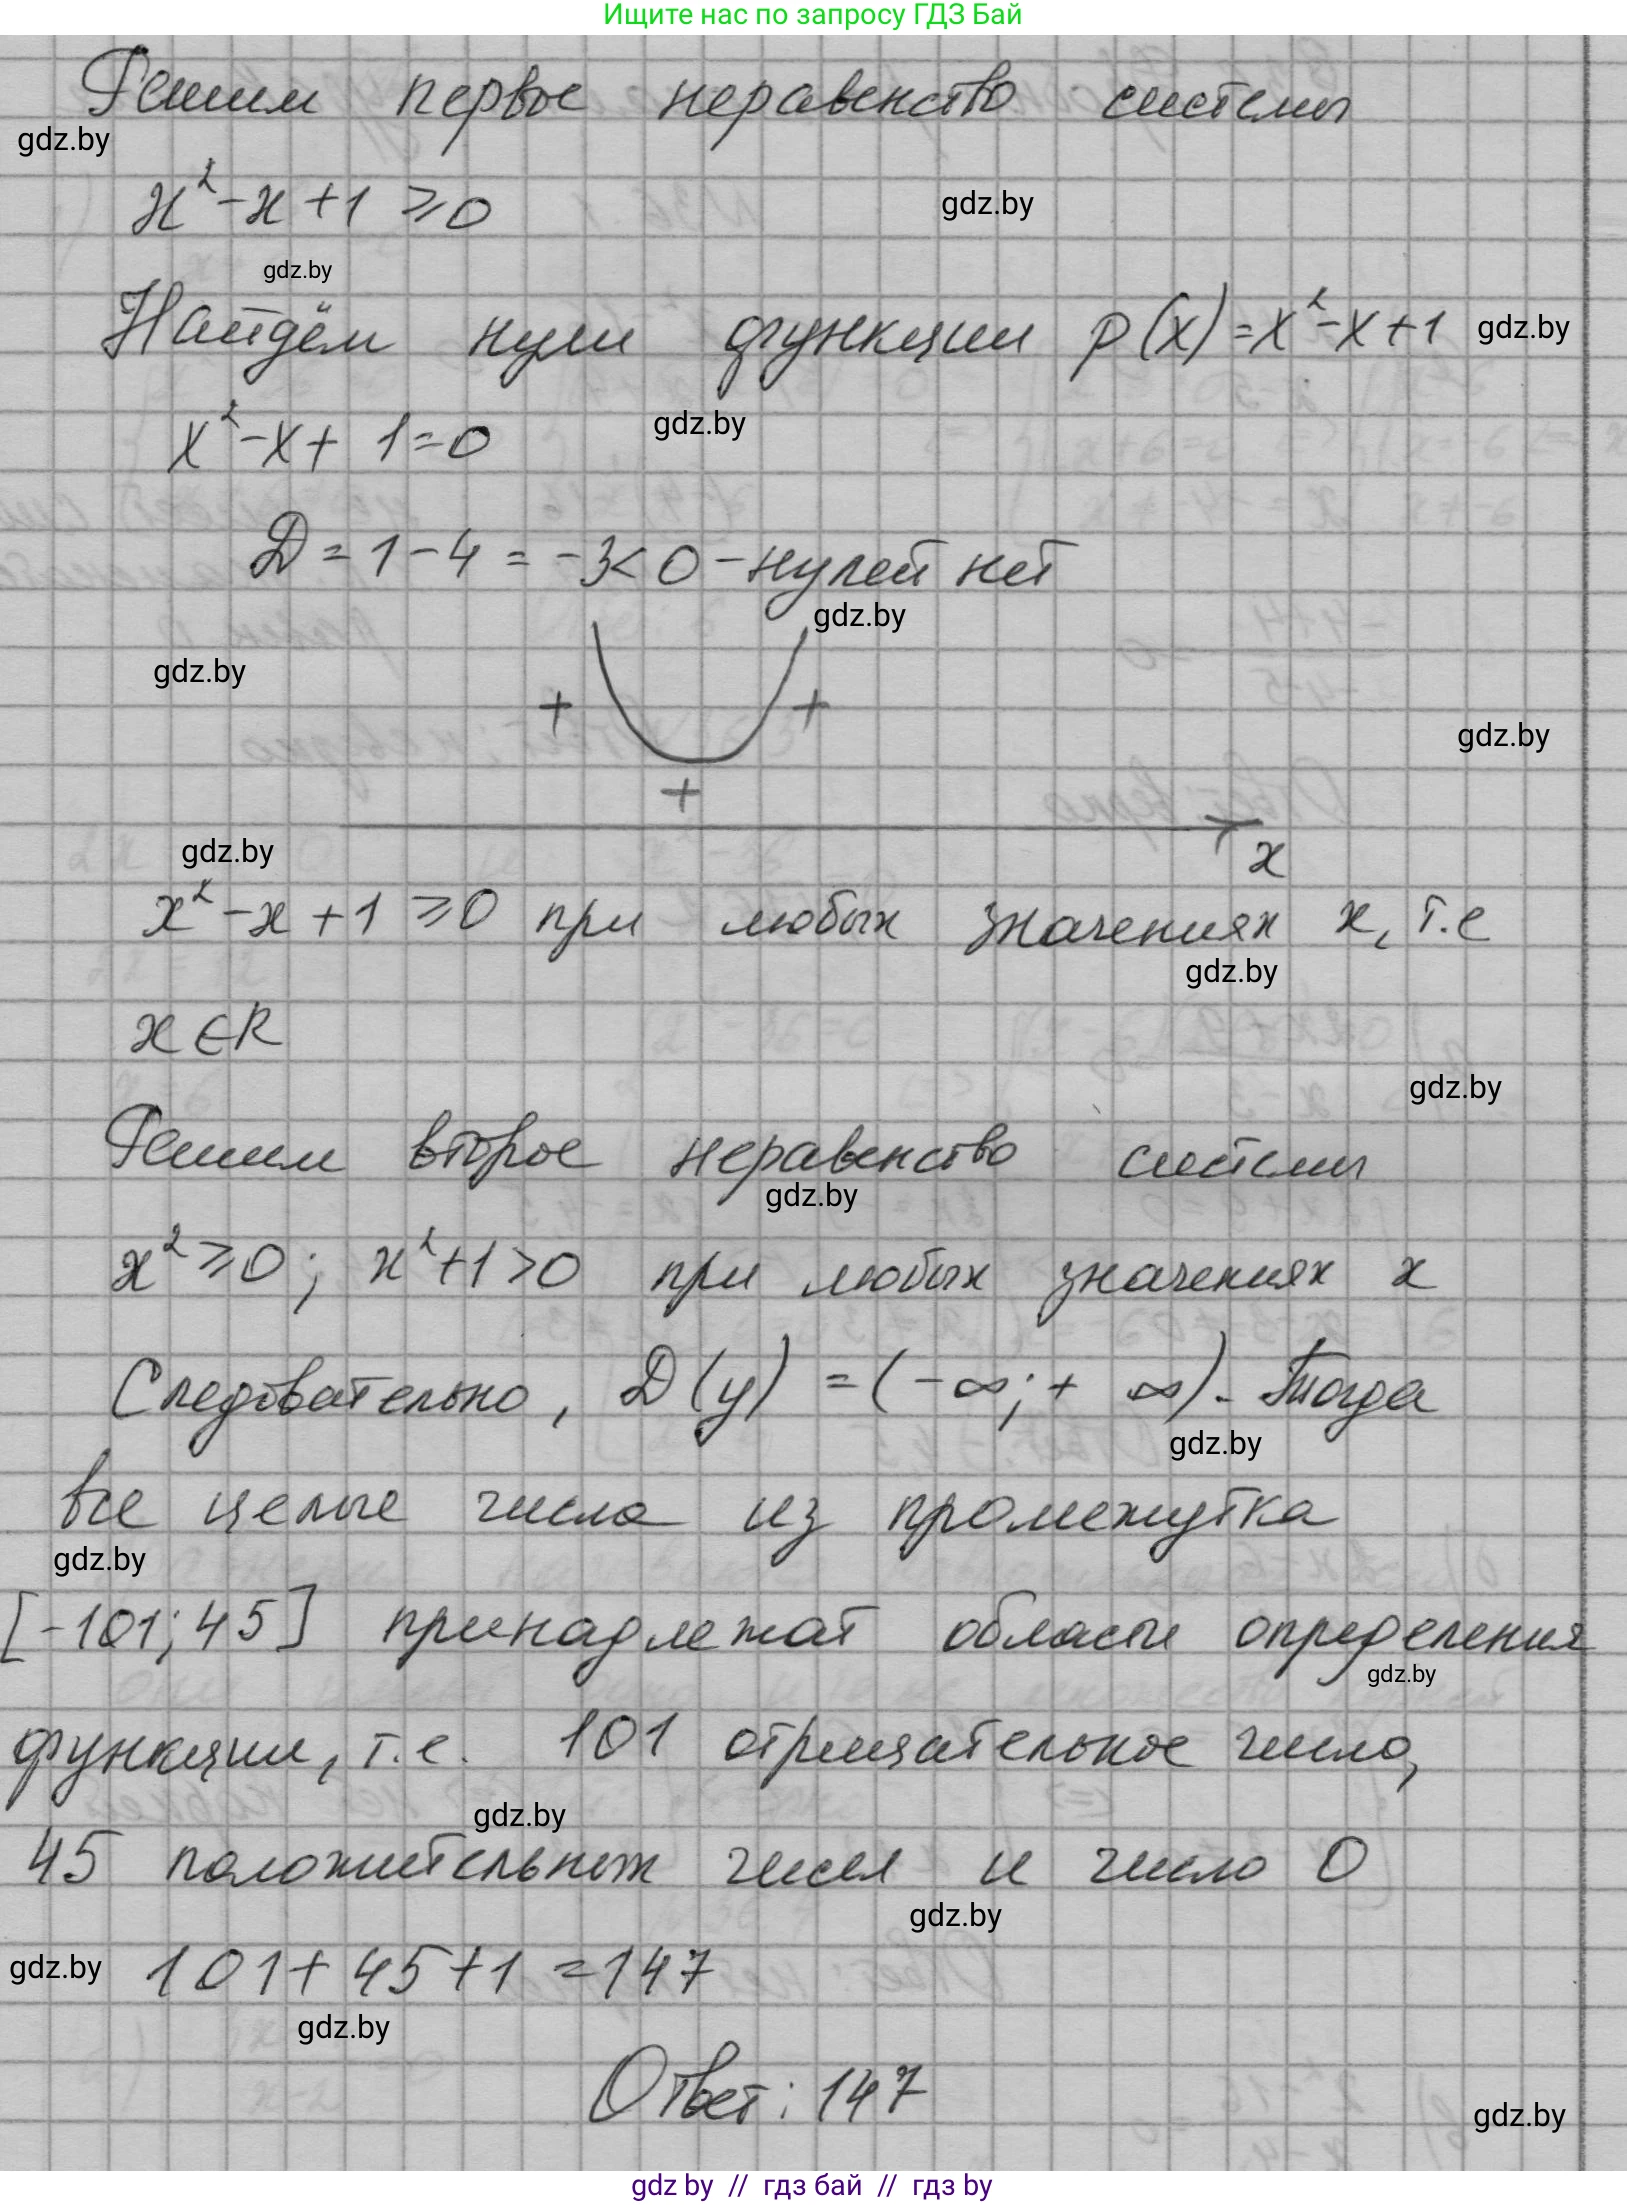 Ищите нас по запросу ГДЗ Бай
Решим первое неравенство системы
gdz.by
x² - x + 1 ≥ 0
gdz.by
gdz.by
gdz.by
Найдём нули функции p(x) = x² - x + 1
gdz.by
x² - x + 1 = 0
gdz.by
D = 1 - 4 = -3 < 0 - нулей нет
gdz.by
gdz.by
+ +
gdz.by
+
x
gdz.by
x² - x + 1 ≥ 0 при любых значениях x, т.е
gdz.by
x ∈ R
gdz.by
Решим второе неравенство системы
gdz.by
x² ≥ 0; x² + 1 > 0 при любых значениях x
Следовательно, D(y) = (-∞; + ∞). Тогда
gdz.by
все целые числа из промежутка
gdz.by
[-101; 45] принадлежат области определения
gdz.by
функции, т.е. 101 отрицательное число,
gdz.by
45 положительных чисел и число 0
gdz.by
gdz.by
101 + 45 + 1 = 147
gdz.by
Ответ: 147
gdz.by
gdz by // гдз бай // гдз by